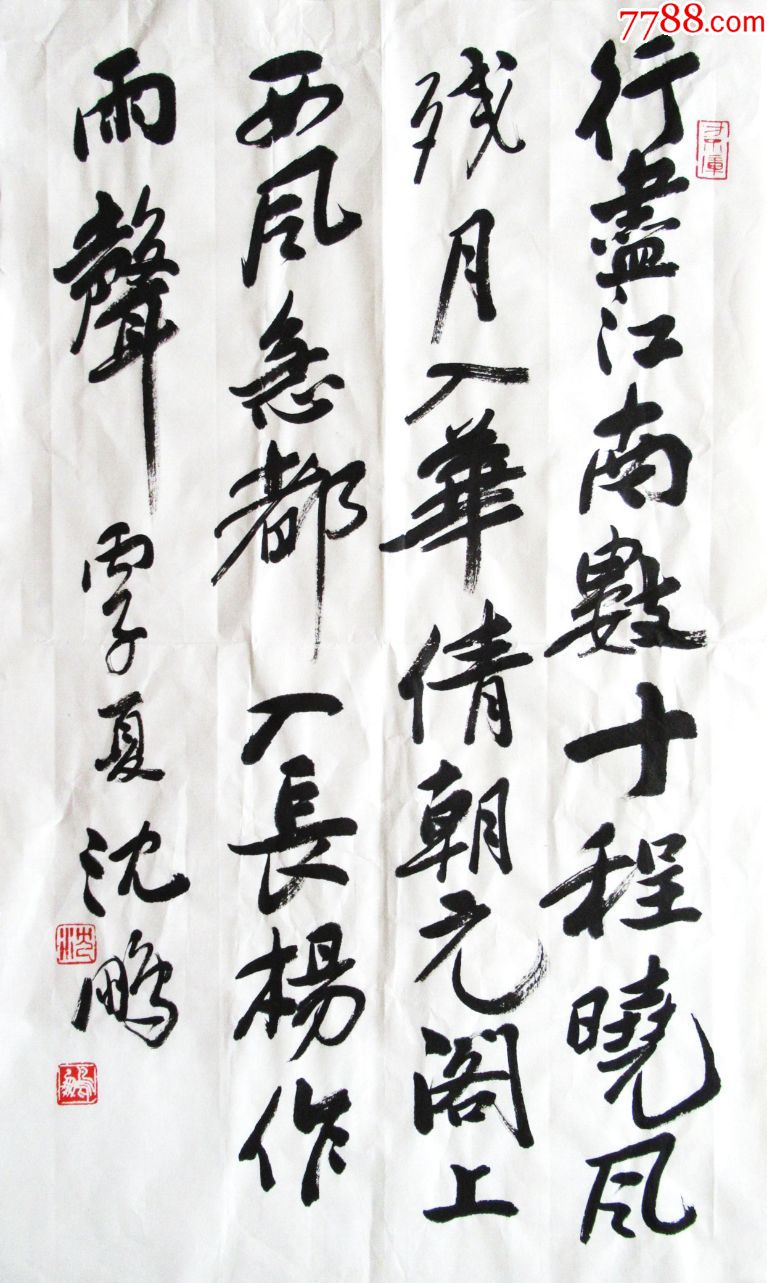 7788.com
行盡江南數十程曉風
残月入華倩朝元阁上
西風急都入長楊作
雨聲 丙子夏 沈鵬
沈